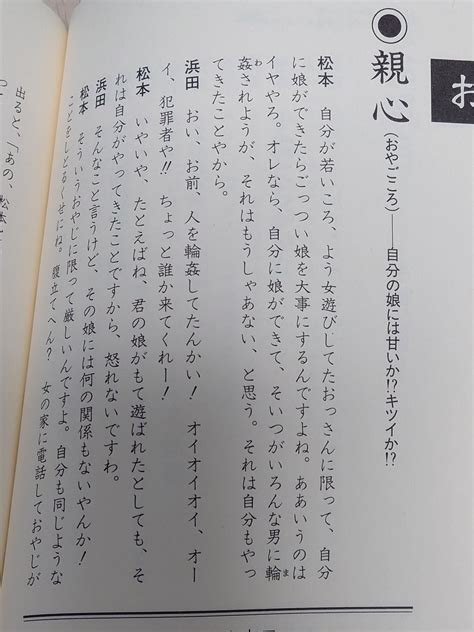 お
◉親心(おやごころ)——自分の娘には甘いか!?キツイか!?
松本　自分が若いころ、よう女遊びしてたおっさんに限って、自分
に娘ができたらごっつい娘を大事にするんですよね。ああいうのは
イヤやろ。オレなら、自分に娘ができて、そいつがいろんな男に輪
姦されようが、それはもうしゃあない、と思う。それは自分もやっ
てきたことやから。
浜田　おい、お前、人を輪姦してたんかい！　オイオイオイ、オー
イ、犯罪者や!!　ちょっと誰か来てくれー！
松本　いやいや、たとえばね、君の娘がもて遊ばれたとしても、そ
れは自分がやってきたことですから、怒れないですわ。
浜田　そんなこと言うけど、その娘には何の関係もないやんか！
松本　そういうおやじに限って厳しいんですよ。自分も同じような
ことをしとるくせにね。腹立てへん？　女の家に電話しておやじが
出ると、「あの、松本